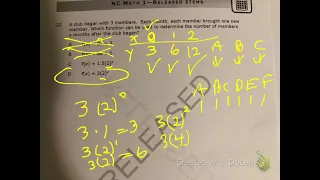 NC MATH 1—RELEASED ITEMS
22 A club began with 3 members. Each month, each member brought one new
member. Which function can be used to determine the number of members
x months after the club began?
X 0 1 2 A B C
Y 3 6 12
C f(x) = 1.5(2)ˣ
D f(x) = 3(2)ˣ
3(2)⁰ A B C D E F
3·1=3 3(2)²
3(2)¹ 3(4)
3(2)=6
RELEASED
Created with